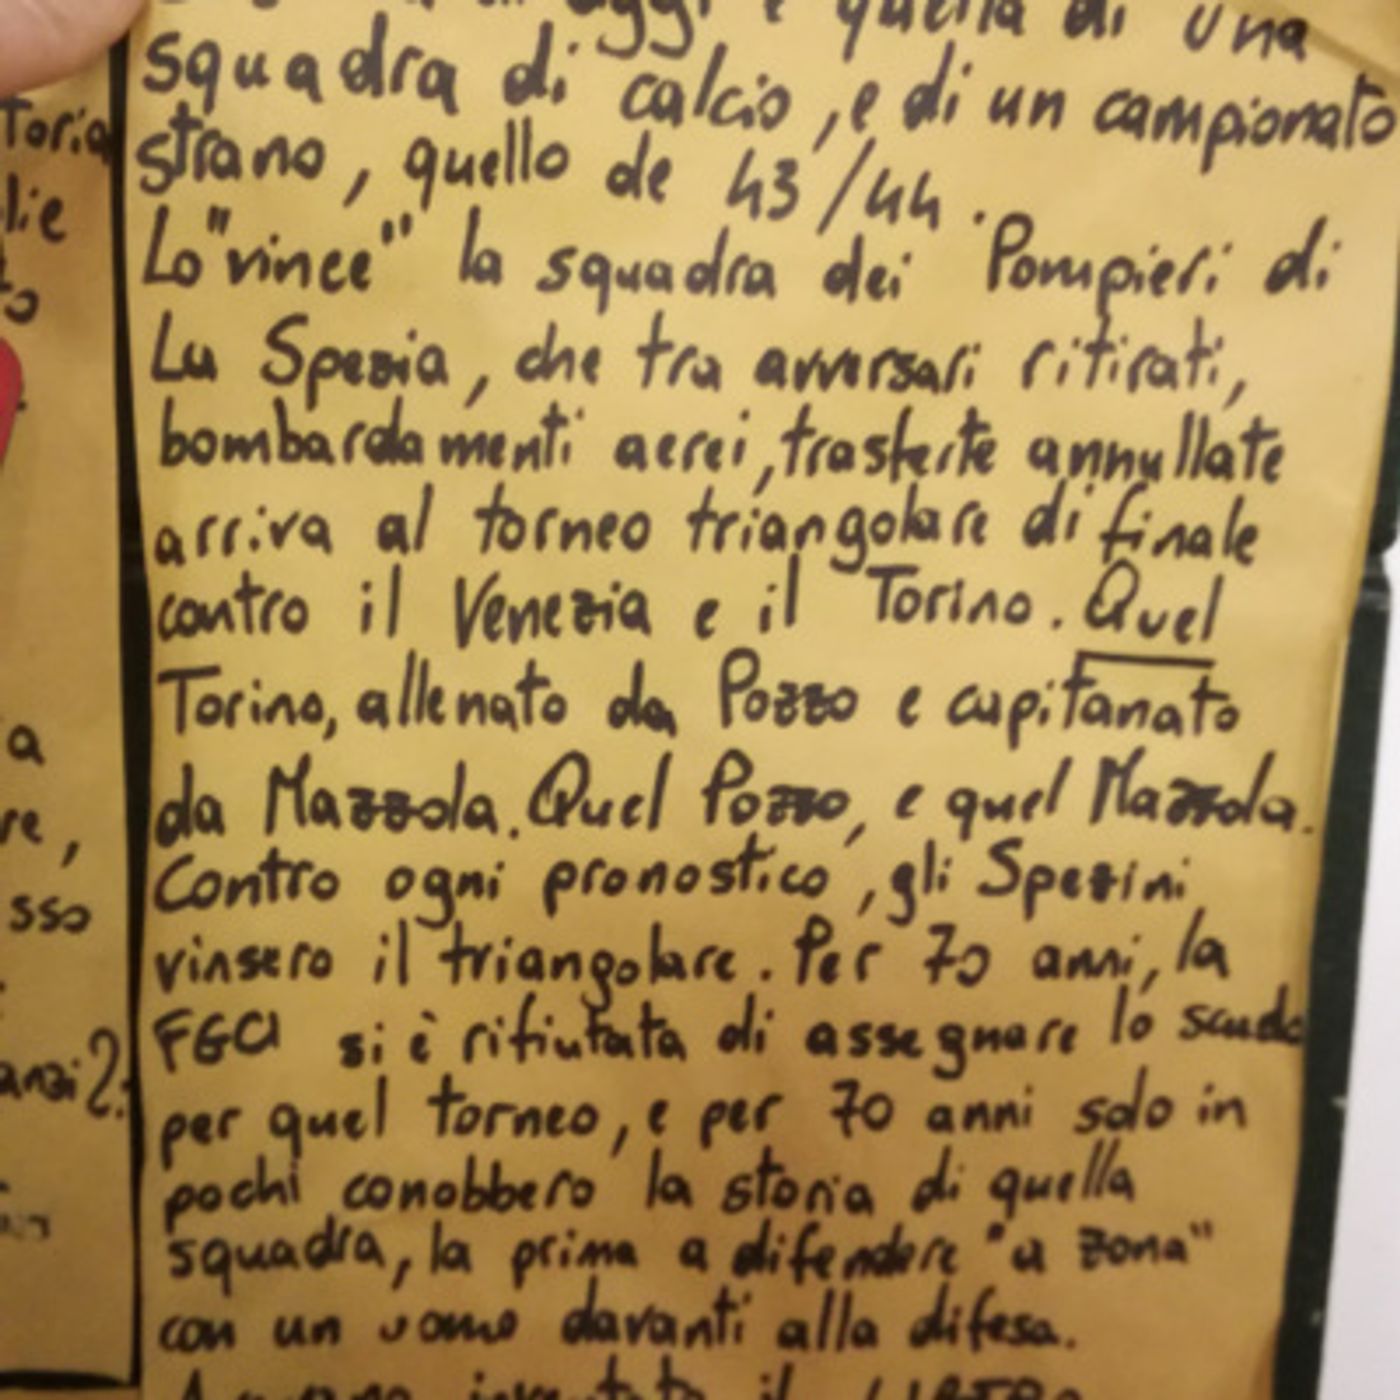 oggi è quella di una
squadra di calcio, e di un campionato
strano, quello de 43/44.
Lo "vince" la squadra dei Pompieri di
La Spezia, che tra avversari ritirati,
bombardamenti aerei, trasferte annullate
arriva al torneo triangolare di finale
contro il Venezia e il Torino. Quel
Torino, allenato da Pozzo e capitanato
da Mazzola. Quel Pozzo, e quel Mazzola.
Contro ogni pronostico, gli Spezini
vinsero il triangolare. Per 70 anni, la
FGCI si è rifiutata di assegnare lo scudo
per quel torneo, e per 70 anni solo in
pochi conobbero la storia di quella
squadra, la prima a difendere "a zona"
con un uomo davanti alla difesa.
il
toria
lie
to
a
re,
sso
anzi?